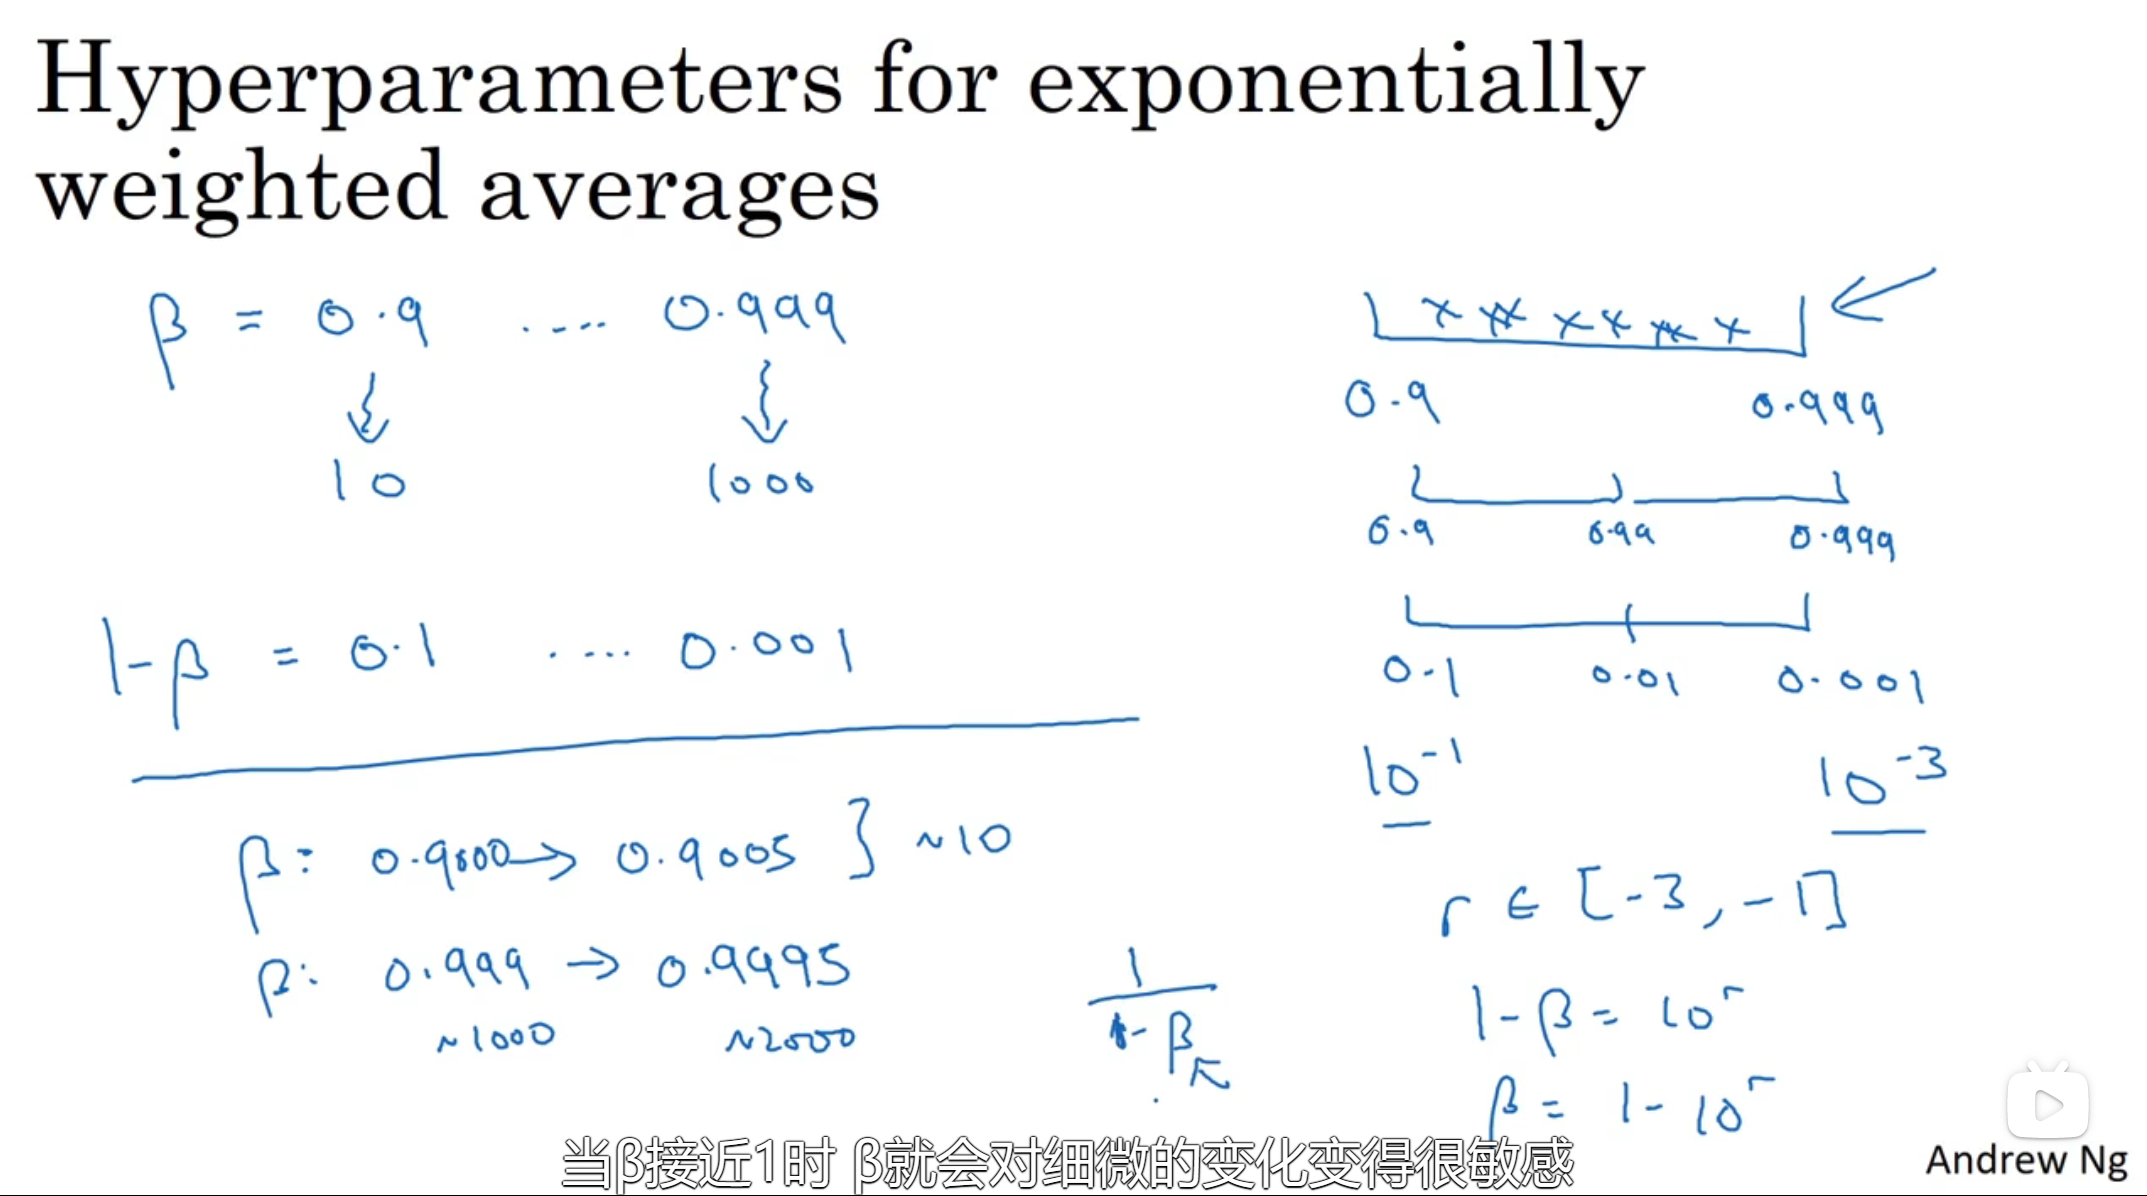 Hyperparameters for exponentially
weighted averages
β = 0.9 .... 0.999
10 1000
1-β = 0.1 .... 0.001
β: 0.9000 → 0.9005 } ~10
β: 0.999 → 0.9995
~1000 ~2000
1
1-β
0.9 0.999
0.9 0.99 0.999
0.1 0.01 0.001
10⁻¹ 10⁻³
r ∈ [-3, -1]
1-β = 10ʳ
β = 1-10ʳ
当β接近1时 β就会对细微的变化变得很敏感
Andrew Ng